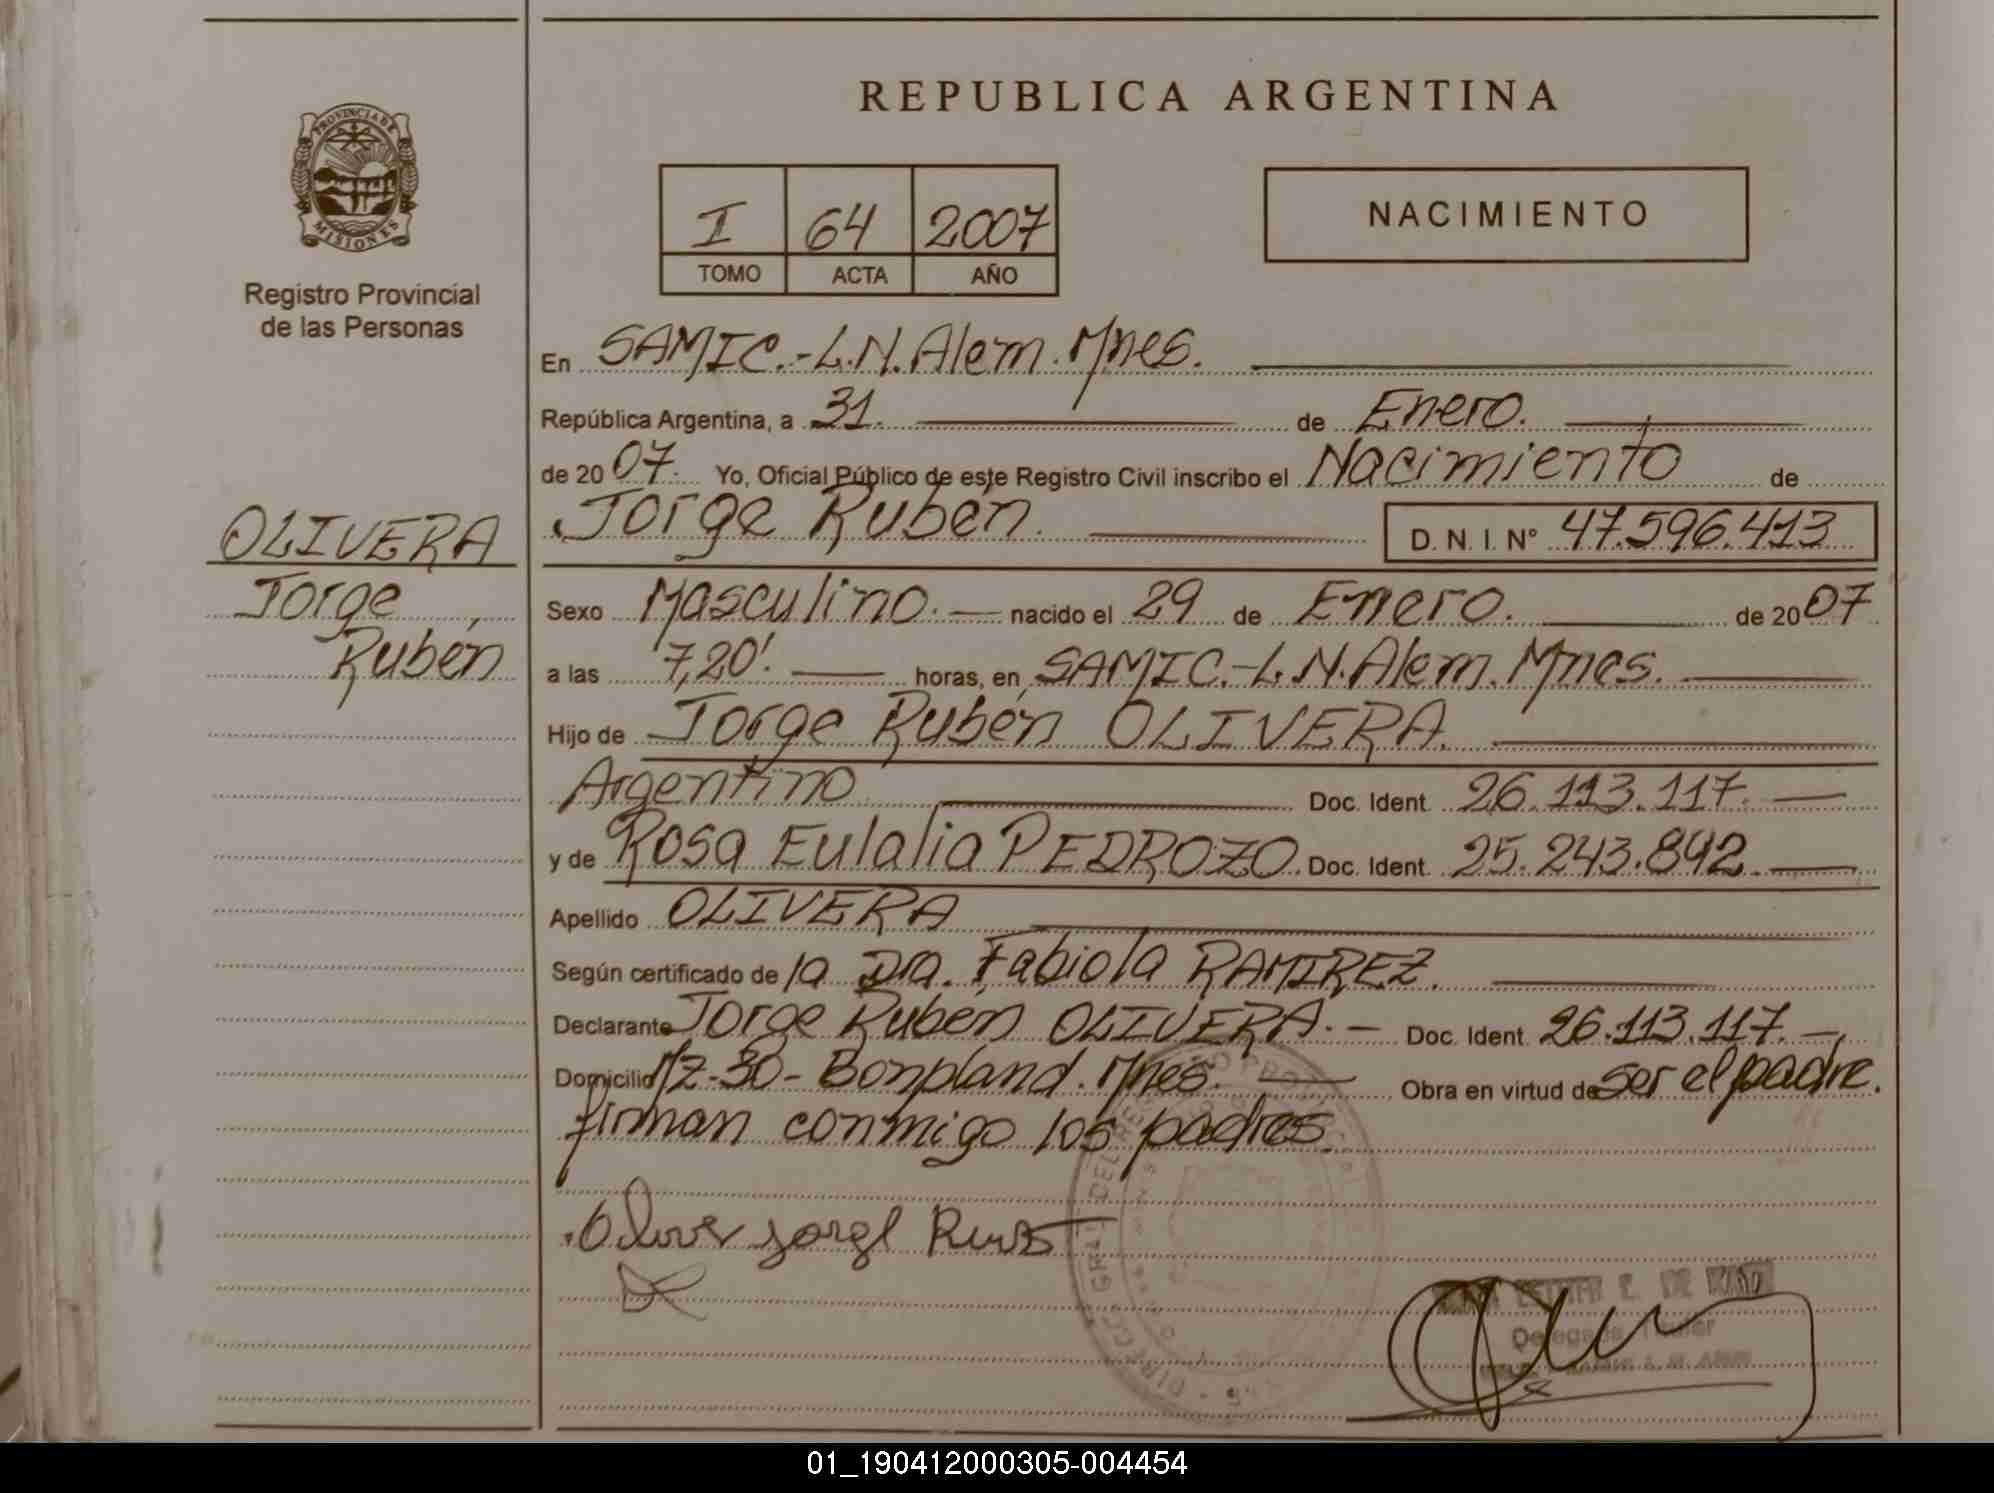 REPUBLICA ARGENTINA
PROVINCIA DE
MISIONES
Registro Provincial
de las Personas
I 64 2007
TOMO ACTA AÑO
NACIMIENTO
En SAMIC.-L.N.Alem.Mnes.
República Argentina, a 31. de Enero.
de 2007. Yo, Oficial Público de este Registro Civil inscribo el Nacimiento de
Jorge Rubén. D. N. I. N° 47.596.413
OLIVERA
Jorge
Rubén
Sexo Masculino. nacido el 29 de Enero. de 2007
a las 7,20'. horas, en SAMIC.-L.N.Alem.Mnes.
Hijo de Jorge Rubén OLIVERA.
Argentino Doc. Ident 26.113.117.
y de Rosa Eulalia PEDROZO. Doc. Ident. 25.243.892.
Apellido OLIVERA
Según certificado de la Dra. Fabiola RAMIREZ.
Declarante Jorge Rubén OLIVERA. Doc. Ident. 26.113.117.
Domicilio Mz-30-Bonpland.Mnes. Obra en virtud de ser el padre.
firman conmigo los padres.
01_190412000305-004454